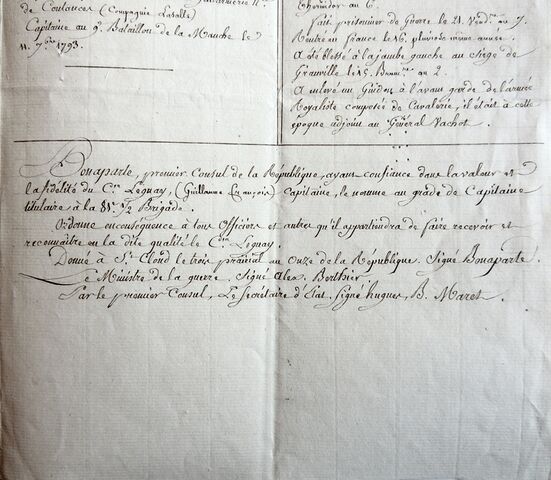 de Coutances (Compagnie Lasalle)
Capitaine au 9e Bataillon de la Manche le
11. 7bre 1793.
Thermidor an 6.
fait prisonnier de Guerre le 21. Vendre an 7.
Rentré en france le 16. pluviose même année.
A été blessé à la jambe gauche au siège de
Granville le 15. Brumre an 2.
A enlevé un Guidon à l'avant garde de l'armée
Royaliste composée de Cavalerie, il était à cette
époque adjoint au Général Vachot.
Bonaparte, premier Consul de la République, ayant confiance dans la valeur et
la fidélité du Cen Leguay, (Guillaume François) Capitaine, le nomme au grade de Capitaine
titulaire à la 81e 1/2 Brigade.
Ordonne en conséquence à tous Officiers et autres qu'il appartiendra de faire recevoir et
reconnaitre en la dite qualité le Cen Leguay.
Donné à St Cloud le trois prairial an Onze de la République. Signé Bonaparte.
Le Ministre de la guerre, Signé Alex. Berthier
Par le premier Consul, Le Secrétaire d'Etat. Signé hugues, B. Maret.